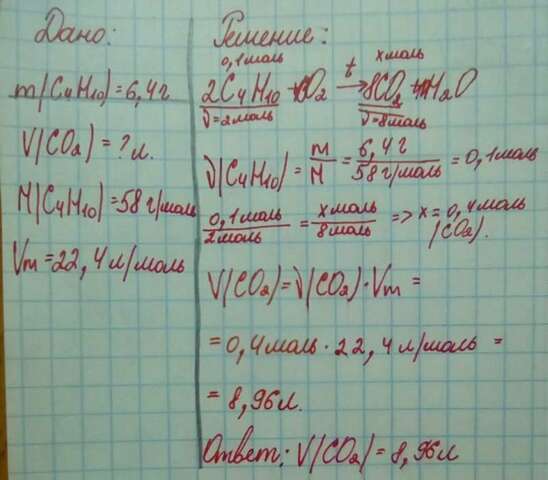 Дано:
m(C4H10) = 6,4г
V(CO2) = ? л.
M(C4H10) = 58 г/моль
Vm = 22,4 л/моль
Решение:
0,1моль xмоль
2C4H10 + O2 t→ 8CO2 + H2O
ν=2моль ν=8моль
ν(C4H10) = m/M = 6,4г/58 г/моль = 0,1моль
0,1моль/2моль = xмоль/8моль => x = 0,4моль
(CO2).
V(CO2) = ν(CO2) · Vm =
= 0,4моль · 22,4 л/моль =
= 8,96л.
Ответ: V(CO2) = 8,96л